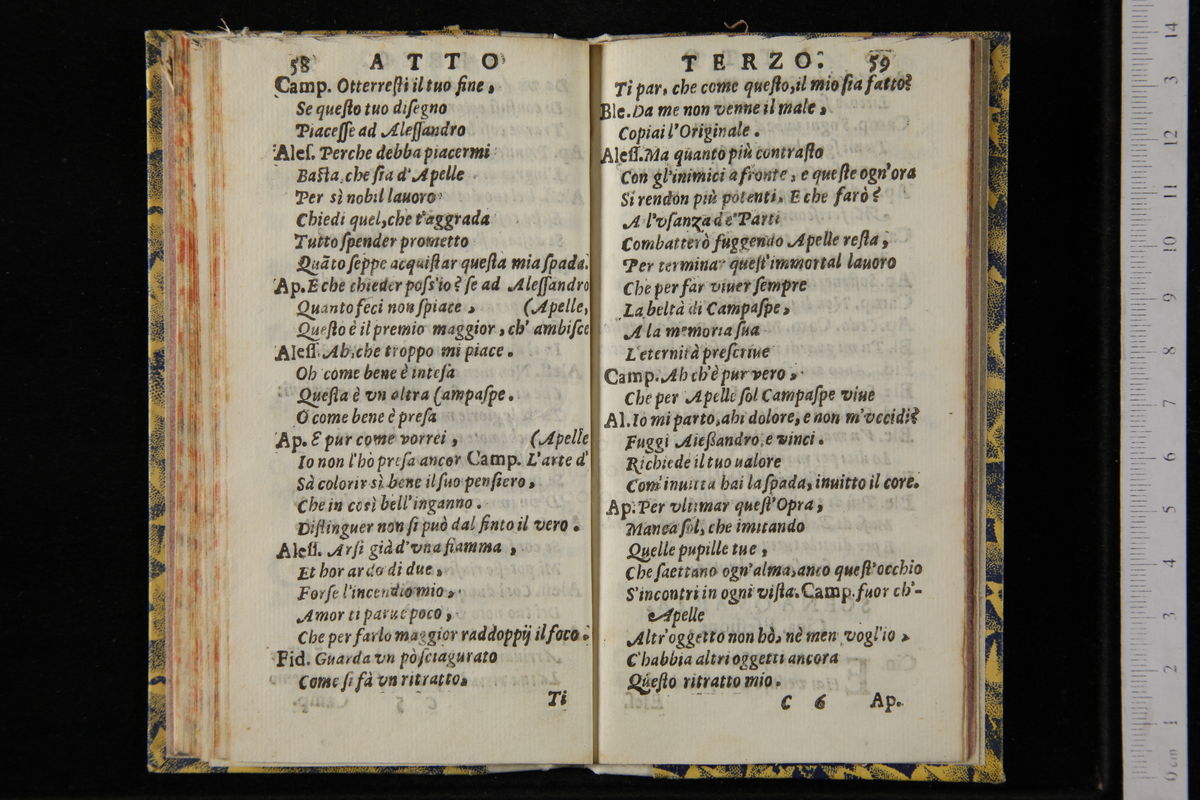 58 ATTO
Camp. Otterreſti il tuo fine,
Se queſto tuo diſegno
Piaceſſe ad Aleſſandro
Aleſ. Perche debba piacermi
Baſta, che ſia d'Apelle
Per sì nobil lauoro
Chiedi quel, che t'aggrada
Tutto ſpender prometto
Quãto ſeppe acquiſtar queſta mia ſpada.
Ap. E che chieder poſs'io? ſe ad Aleſſandro
Quanto feci non ſpiace, (Apelle,
Queſto è il premio maggior, ch'ambiſce
Aleſſ. Ah, che troppo mi piace.
Oh come bene è inteſa
Queſta è vn altra Campaſpe.
O come bene è preſa
Ap. E pur come vorrei, (Apelle
Io non l'hò preſa ancor Camp. L'arte d'
Sà colorir sì bene il ſuo penſiero,
Che in così bell'inganno.
Diſtinguer non ſi può dal finto il vero.
Aleſſ. Arſi già d'vna fiamma,
Et hor ardo di due,
Forſe l'incendio mio,
Amor ti parue poco,
Che per farlo maggior raddoppij il foco.
Fid. Guarda vn pò ſciagurato
Come ſi fà vn ritratto,
Ti
TERZO. 59
Ti par, che come queſto, il mio ſia fatto?
Ble. Da me non venne il male,
Copiai l'Originale.
Aleſſ. Ma quanto più contraſto
Con gl'inimici a fronte, e queſte ogn'ora
Si rendon più potenti. E che farò?
A l'vſanza de' Parti
Combatterò fuggendo Apelle reſta,
Per terminar queſt'immortal lauoro
Che per far viuer ſempre
La beltà di Campaſpe,
A la memoria ſua
L'eternità preſcriue
Camp. Ah ch'è pur vero,
Che per Apelle ſol Campaſpe viue
Al. Io mi parto, ahi dolore, e non m'vccidi?
Fuggi Aleßandro, e vinci.
Richiede il tuo ualore
Com'inuitta hai la ſpada, inuitto il core.
Ap. Per vltimar queſt'Opra,
Manca ſol, che imitando
Quelle pupille tue,
Che ſaettano ogn'alma, anco queſt'occhio
S'incontri in ogni viſta. Camp. fuor ch'-
Apelle
Altr'oggetto non hò, nè men vogl'io,
C'habbia altri oggetti ancora
Queſto ritratto mio.
C 6 Ap.
14
13
12
11
10
9
8
7
6
5
4
3
2
1
0 cm